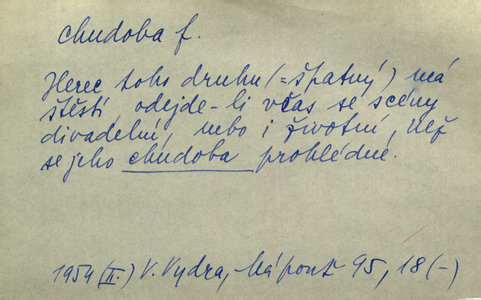 chudoba f.
Herec toho druhu (= špatný) má
štěstí odejde-li včas se scény
divadelní, nebo i životní, než
se jeho chudoba prohlédne.
1954 (II.) V. Vydra, Má pouť 95, 18 (-)